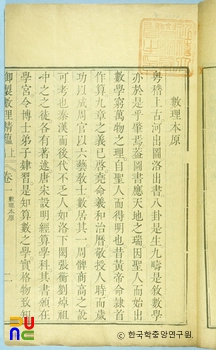 數理本原
粵稽上古河出圖洛出書八卦是生九疇是敘數學
亦於是乎肇焉蓋圖書應天地之瑞因聖人而始出
數學窮萬物之理自聖人而得明也昔黃帝命隸首
作算九章之義已啓堯命羲和治曆敬授人時而歲
功以成周官以六藝教士數居其一周髀商高之說
可考也秦漢而後代不乏人如洛下閎張衡劉焯祖
冲之之徒各有著述唐宋設明經算學科其書頒在
學宮令博士弟子肄習是知算數之學實格物致知
御製數理精蘊 上 卷一 數理本原
한국학중앙연구원